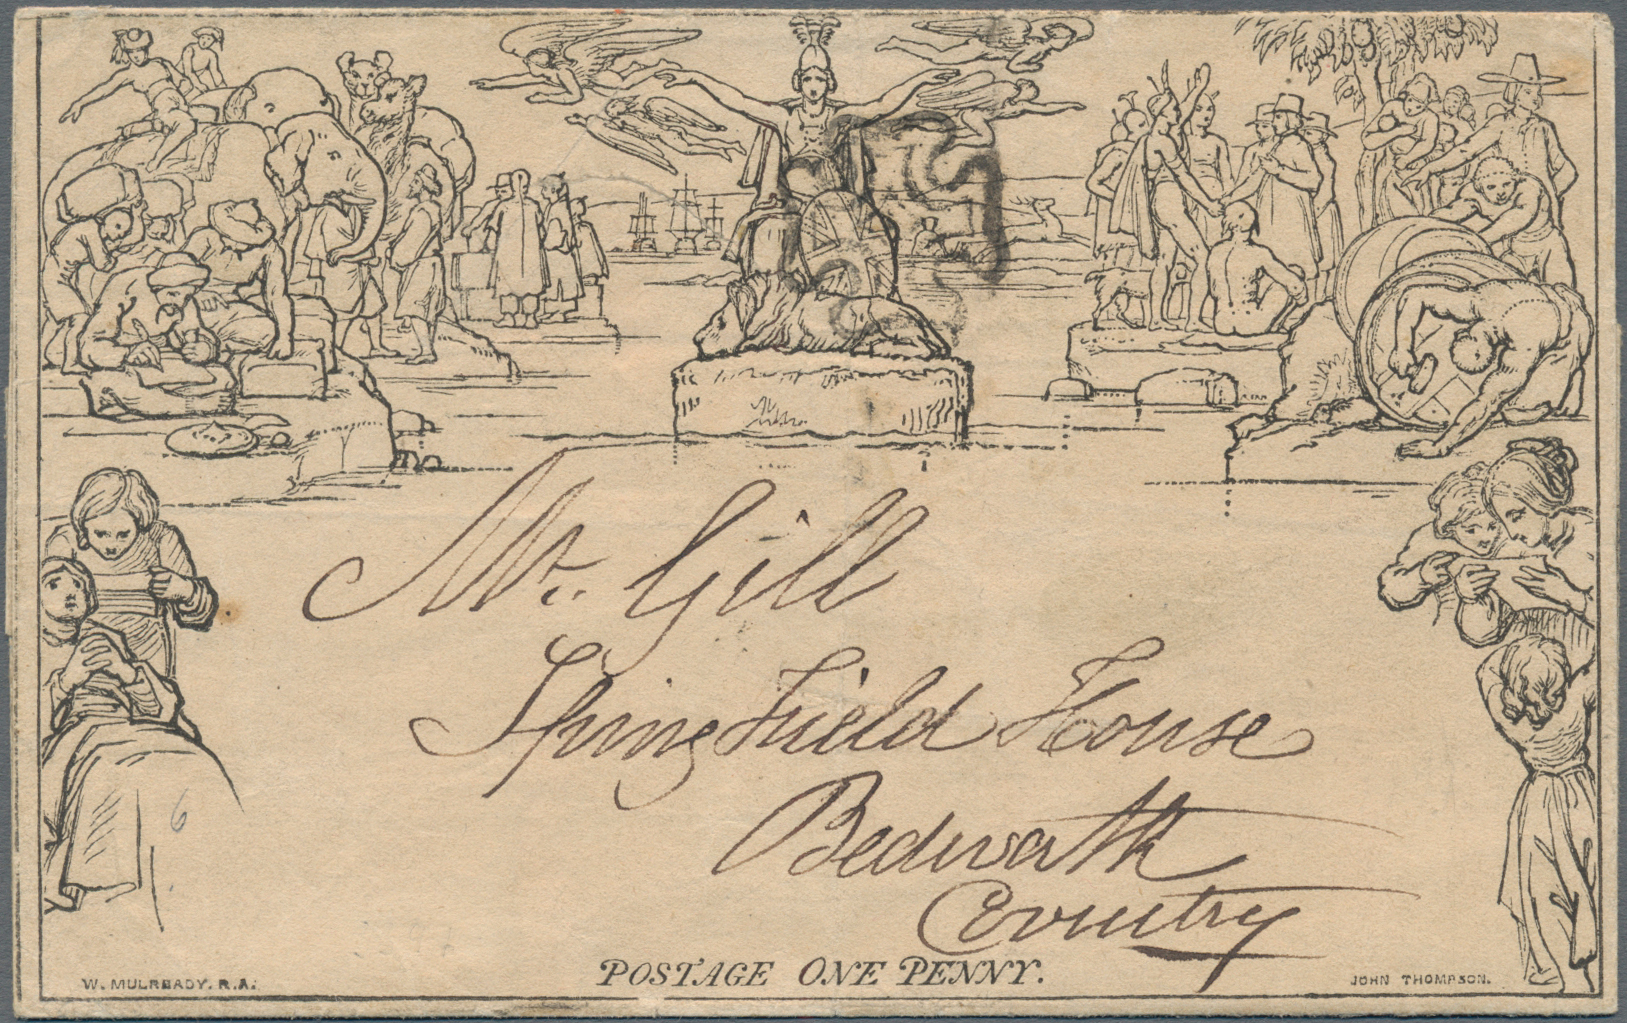 Mr. Gill
Springfield House
Bedworth
Coventry
POSTAGE ONE PENNY.
W. MULREADY. R.A.
JOHN THOMPSON.
6